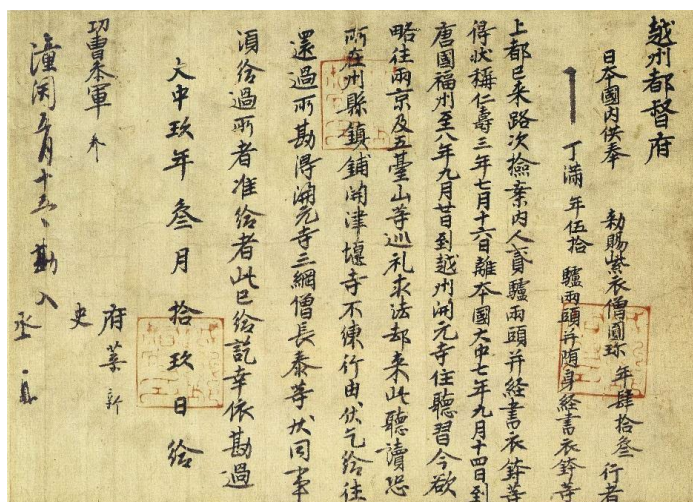 越州都督府
日本國内供奉 勅賜紫衣僧圓珎 年肆拾叁 行者
丁滿 年伍拾 驢兩頭并随身経書衣鉢等
上都已来路次檢案内人貳驢兩頭并経書衣鉢等
得狀稱仁壽三年七月十六日離夲國大中七年九月十四日到
唐國福州至八年九月廿日到越州開元寺住聽習今欲
略往兩京及五臺山等巡礼求法却来此聽讀恐
所在州縣鎮鋪開津堰寺不練行由伏乞給往
還過所勘得開元寺三綱僧長泰等狀同事
須給過所者准給者此已給訖幸依勘過
大中玖年叁月拾玖日給
府葉新
功曹叅軍
史
潼関五月十五日勘入
丞